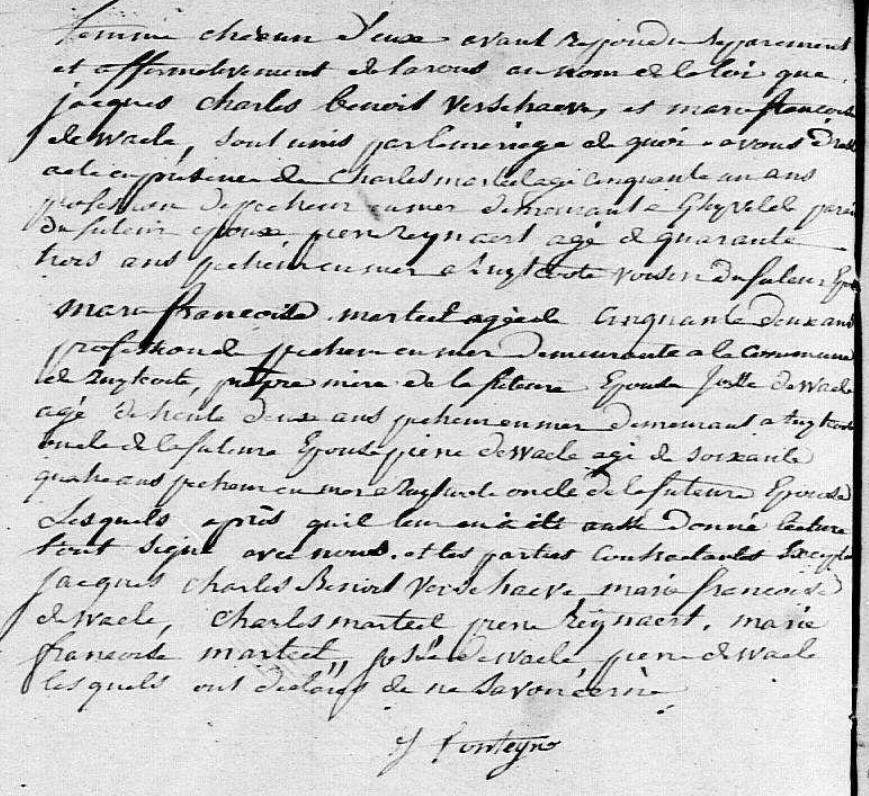 femme chacun d'eux ayant repondu separement
et affirmativement declarons au nom de la loi que
jacques charles Benoit Verschaeve, et marie françoise
de waele, sont unis par le mariage de quoi avons dressé
acte en présence de Charles marteel agé cinquante un ans
profession de pecheur en mer demeurant a Ghyvelde
du futeur epoux pierre Reynaert agé de quarante
trois ans pecheur en mer a Zuytcote voisin du futeur Epoux
marie françoise marteel agée de Cinquante deux ans
profession de pecheur en mer demeurante a la Commune
de Zuytcote, propre mère de la future Epouse Josse de Wael
agé de trente deux ans pecheur en mer demeurant a Zuytcote
oncle de la future Epouse pierre de Waele agé de soixante
quatre ans pecheur en mer a Zuytcote oncle de la future Epouse
Lesquels après qu'il leur en a été aussi donné lecture
tout signé avec nous. et les parties Contractantes Excepté
jacques charles Benoit Verschaeve, marie francoise
de waele, charles marteel pierre Reynaert. marie
francoise marteel, josse de waele pierre de waele
lesquels ont declarés de ne savoir écrire